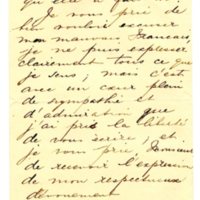 je vous prie de
bien vouloir excuser
mon mauvais Francais,
je ne puis expresser
clairement tous ce que
je sens; mais c'est
avec un cœur plein
de sympathie et
d'admiration que
j'ai pris la liberté
de vous écrire, et
je vous prie, Monsieur
de recevoir l'expression
de mon respectueux
dévouement